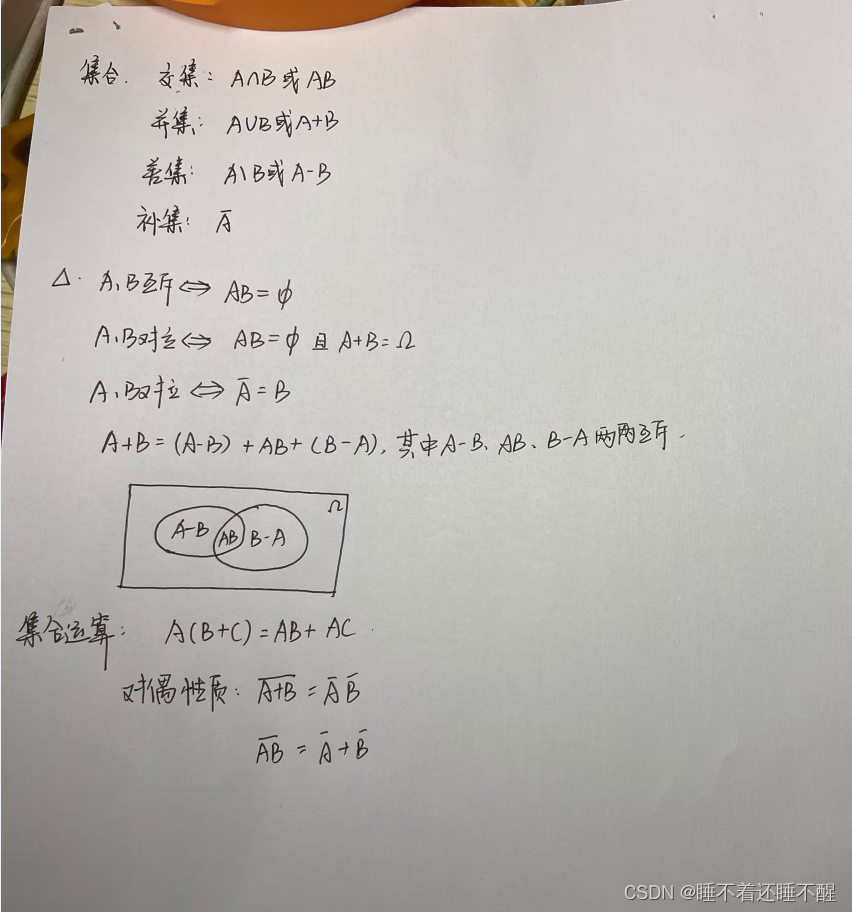 集合. 交集: A∩B或AB
并集: A∪B或A+B
差集: A\B或A-B
补集: Ā
△. A,B互斥⇔ AB=φ
A,B对立⇔ AB=φ 且 A+B=Ω
A,B对立⇔ Ā=B
A+B=(A-B)+AB+(B-A),其中A-B、AB、B-A两两互斥.
Ω
A-B AB B-A
集合运算: A(B+C)=AB+AC.
对偶性质: A̅+̅B̅ = A̅ B̅
A̅B̅ = A̅+B̅
CSDN @睡不着还睡不醒